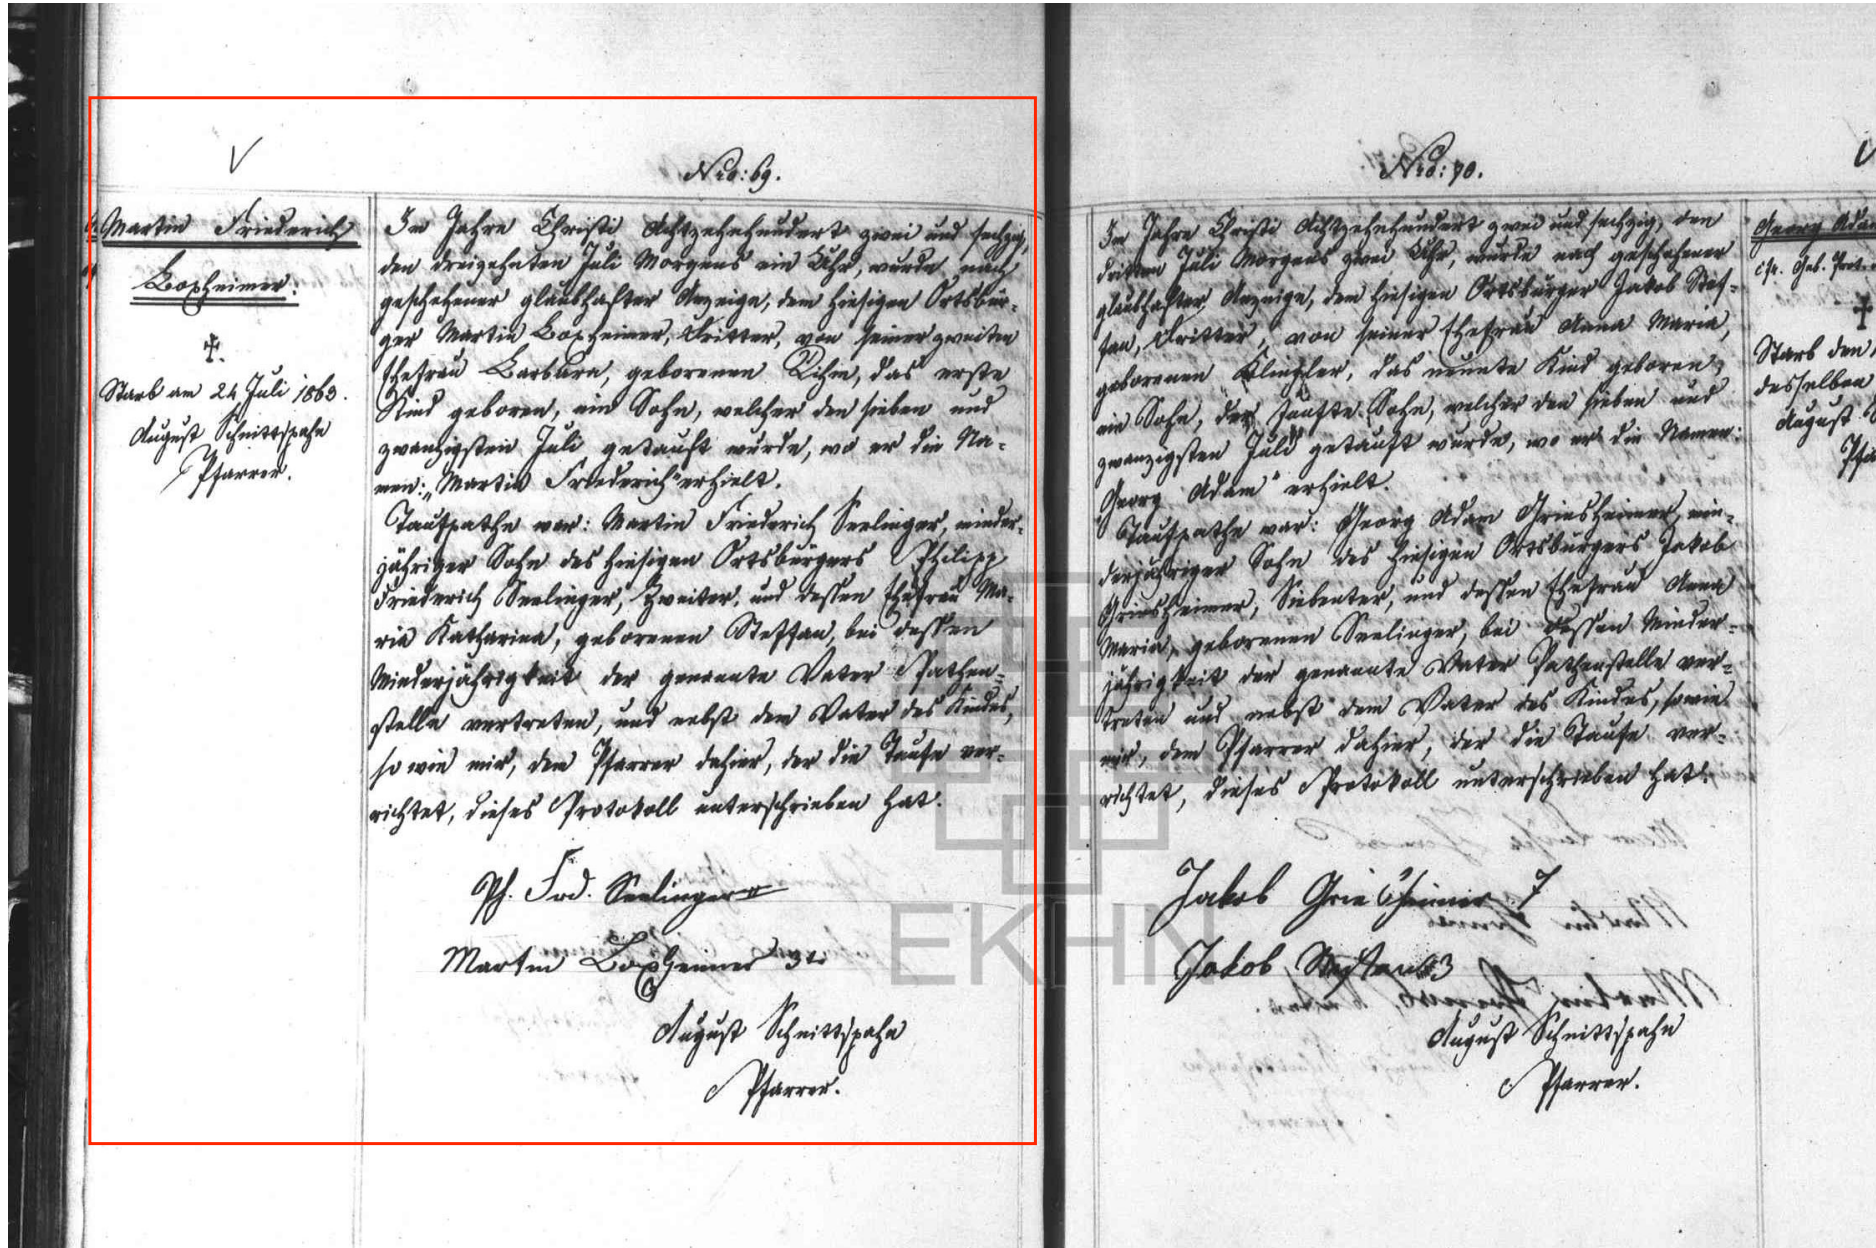 Nro: 69.
Martin Friederich
Boxheimer:
†.
Starb am 24 Juli 1863.
August Schnittspahn
Pfarrer.
Im Jahre Christi Achtzehnhundert zwei und sechzig,
den dreizehnten Juli Morgens ein Uhr, wurde nach
geschehener glaubhafter Anzeige, dem hiesigen Ortsbür-
ger Martin Boxheimer, Dritter, von seiner zweiten
Ehefrau Barbara, geborenen Rihm, das erste
Kind geboren, ein Sohn, welcher den sieben und
zwanzigsten Juli getauft wurde, wo er die Na-
men: „Martin Friederich" erhielt.
Taufpathe war: Martin Friederich Seelinger, minder-
jähriger Sohn des hiesigen Ortsbürgers Philipp
Friederich Seelinger, Zweiter, und dessen Ehefrau Ma-
ria Katharina, geborenen Steffan, bei dessen
Minderjährigkeit der genannte Vater Pathen-
stelle vertreten, und nebst dem Vater des Kindes,
so wie mir, dem Pfarrer dahier, der die Taufe ver-
richtet, dieses Protokoll unterschrieben hat.
Ph. Frd. Seelinger II
Martin Boxheimer 3te
August Schnittspahn
Pfarrer.
Nro: 70.
Im Jahre Christi Achtzehnhundert zwei und sechzig, den
dritten Juli Morgens zwei Uhr, wurde nach geschehener
glaubhafter Anzeige, dem hiesigen Ortsbürger Jakob Stef-
fan, Dritter, von seiner Ehefrau Anna Maria,
geborenen Klingler, das neunte Kind geboren,
ein Sohn, der fünfte Sohn, welcher den sieben und
zwanzigsten Juli getauft wurde, wo er die Namen:
„Georg Adam" erhielt.
Taufpathe war: Georg Adam Griesheimer, min-
derjähriger Sohn des hiesigen Ortsbürgers Jakob
Griesheimer, Siebenter, und dessen Ehefrau Anna
Maria, geborenen Seelinger, bei dessen Minder-
jährigkeit der genannte Vater Pathenstelle ver-
treten und nebst dem Vater des Kindes, sowie
mir, dem Pfarrer dahier, der die Taufe ver-
richtet, dieses Protokoll unterschrieben hat.
Jakob Griesheimer 7
Jakob Steffan 3
August Schnittspahn
Pfarrer.
Georg Ada
Geb. Prot.
†
Starb den
desselben
August
Pfa
EKHN